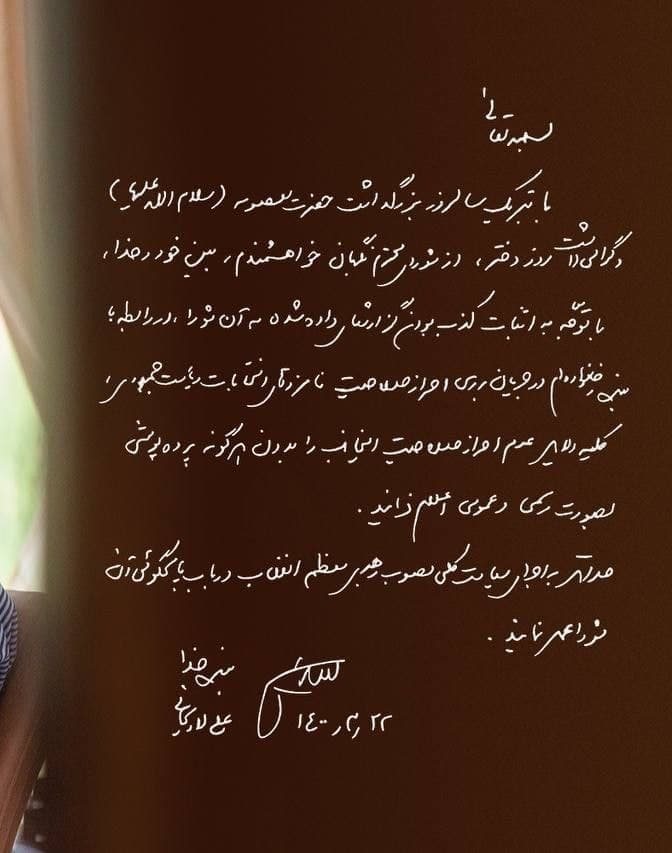 بسمه تعالی
با تبریک سالروز بزرگداشت حضرت معصومه (سلام الله علیها)
و گرامی‌داشت روز دختر، از شورای محترم نگهبان خواهشمندم، بین خود و خدا،
با توجّه به اثبات کذب بودن گزارشهای داده شده به آن شورا، در رابطه با
بنده و خانواده‌ام در جریان بررسی احراز صلاحیت نامزدهای انتخابات ریاست جمهوری،
کلیه دلایل عدم احراز صلاحیت اینجانب را بدون هرگونه پرده پوشی
بصورت رسمی و عمومی اعلام فرمایند.
حداقل به اجرای سیاست کلی مصوب رهبری معظم انقلاب در باب پاسخگوئی آن
شورا عمل نمایند.
بنده خدا
علی لاریجانی
۱۴۰۰٫۳٫۲۲